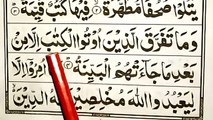 يَتْلُوْا صُحُفًا مُّطَهَّرَةً ۙ﴿۲﴾ فِيْهَا كُتُبٌ قَيِّمَةٌ ؕ﴿۳﴾
وَمَا تَفَرَّقَ الَّذِيْنَ اُوْتُوا الْكِتٰبَ اِلَّا مِنْۢ
بَعْدِ مَا جَآءَتْهُمُ الْبَيِّنَةُ ؕ﴿۴﴾ اُمِرُوْۤا اِلَّا
لِيَعْبُدُوا اللّٰهَ مُخْلِصِيْنَ الدِّيْنَ